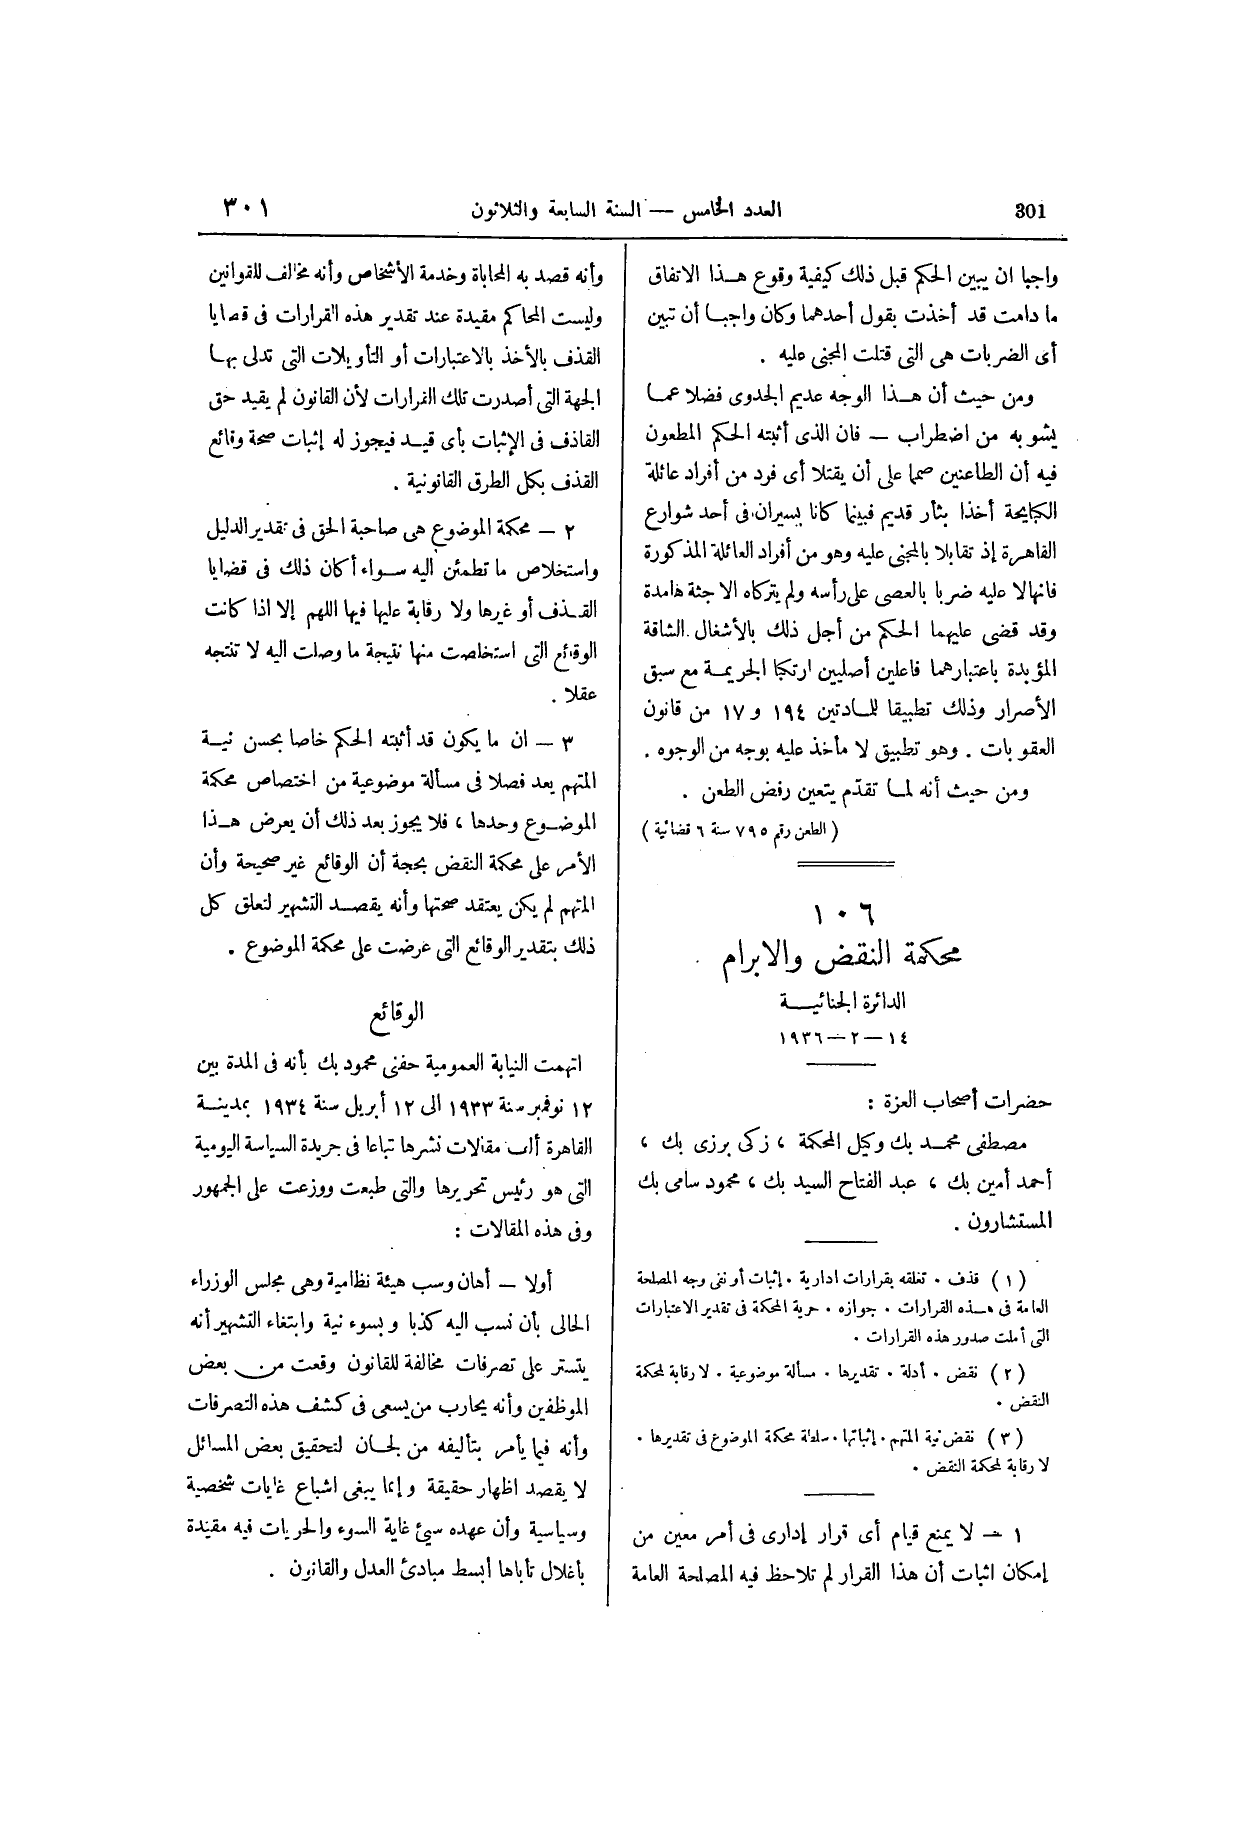 301
العدد الخامس — السنة السابعة والثلاثون
٣٠١
واجبا ان يبين الحكم قبل ذلك كيفية وقوع هذا الاتفاق
ما دامت قد أخذت بقول أحدهما وكان واجبا أن تبين
أى الضربات هى التى قتلت المجنى عليه .
ومن حيث أن هذا الوجه عديم الجدوى فضلا عما
يشوبه من اضطراب — فان الذى أثبته الحكم المطعون
فيه أن الطاعنين صمما على أن يقتلا أى فرد من أفراد عائلة
الكبايحة أخذا بثأر قديم فبينما كانا يسيران فى أحد شوارع
القاهرة إذ تقابلا بالمجنى عليه وهو من أفراد العائلة المذكورة
فانهالا عليه ضربا بالعصى على رأسه ولم يتركاه الا جثة هامدة
وقد قضى عليهما الحكم من أجل ذلك بالأشغال الشاقة
المؤبدة باعتبارهما فاعلين أصليين ارتكبا الجريمة مع سبق
الأصرار وذلك تطبيقا للمادتين ١٩٤ و ١٧ من قانون
العقوبات . وهو تطبيق لا مأخذ عليه بوجه من الوجوه .
ومن حيث أنه لما تقدّم يتعين رفض الطعن .
( الطعن رقم ٧٩٥ سنة ٦ قضائية )
١٠٦
محكمة النقض والابرام
الدائرة الجنائية
١٤ — ٢ — ١٩٣٦
حضرات أصحاب العزة :
مصطفى محمد بك وكيل المحكمة ، زكى برزى بك ،
أحمد أمين بك ، عبد الفتاح السيد بك ، محمود سامى بك
المستشارون .
( ١ ) قذف . تعلقه بقرارات ادارية . إثبات أو نفى وجه المصلحة
العامة فى هذه القرارات . جوازه . حرية المحكمة فى تقدير الاعتبارات
التى أملت صدور هذه القرارات .
( ٢ ) نقض . أدلة . تقديرها . مسألة موضوعية . لا رقابة لمحكمة
النقض .
( ٣ ) نقض نية المتهم . إثباتها . سلطة محكمة الموضوع فى تقديرها .
لا رقابة لمحكمة النقض .
١ — لا يمنع قيام أى قرار إدارى فى أمر معين من
إمكان اثبات أن هذا القرار لم تلاحظ فيه المصلحة العامة
وأنه قصد به المحاباة وخدمة الأشخاص وأنه مخالف للقوانين
وليست المحاكم مقيدة عند تقدير هذه القرارات فى قضايا
القذف بالأخذ بالاعتبارات أو التأويلات التى تدلى بها
الجهة التى أصدرت تلك القرارات لأن القانون لم يقيد حق
القاذف فى الإثبات بأى قيد فيجوز له إثبات صحة وقائع
القذف بكل الطرق القانونية .
٢ — محكمة الموضوع هى صاحبة الحق فى تقدير الدليل
واستخلاص ما تطمئن اليه سواء أكان ذلك فى قضايا
القذف أو غيرها ولا رقابة عليها فيها اللهم إلا اذا كانت
الوقائع التى استخلصت منها نتيجة ما وصلت اليه لا تنتجه
عقلا .
٣ — ان ما يكون قد أثبته الحكم خاصا بحسن نية
المتهم يعد فصلا فى مسألة موضوعية من اختصاص محكمة
الموضوع وحدها ، فلا يجوز بعد ذلك أن يعرض هذا
الأمر على محكمة النقض بحجة أن الوقائع غير صحيحة وأن
المتهم لم يكن يعتقد صحتها وأنه يقصد التشهير لتعلق كل
ذلك بتقدير الوقائع التى عرضت على محكمة الموضوع .
الوقائع
اتهمت النيابة العمومية حفنى محمود بك بأنه فى المدة بين
١٢ نوفمبر سنة ١٩٣٣ الى ١٢ أبريل سنة ١٩٣٤ بمدينة
القاهرة ألف مقالات نشرها تباعا فى جريدة السياسة اليومية
التى هو رئيس تحريرها والتى طبعت ووزعت على الجمهور
وفى هذه المقالات :
أولا — أهان وسب هيئة نظامية وهى مجلس الوزراء
الحالى بأن نسب اليه كذبا وبسوء نية وابتغاء التشهير أنه
يتستر على تصرفات مخالفة للقانون وقعت من بعض
الموظفين وأنه يحارب من يسعى فى كشف هذه التصرفات
وأنه فيما يأمر بتأليفه من لجان لتحقيق بعض المسائل
لا يقصد اظهار حقيقة وإنما يبغى اشباع غايات شخصية
وسياسية وأن عهده سيئ غاية السوء والحريات فيه مقيدة
بأغلال تأباها أبسط مبادئ العدل والقانون .